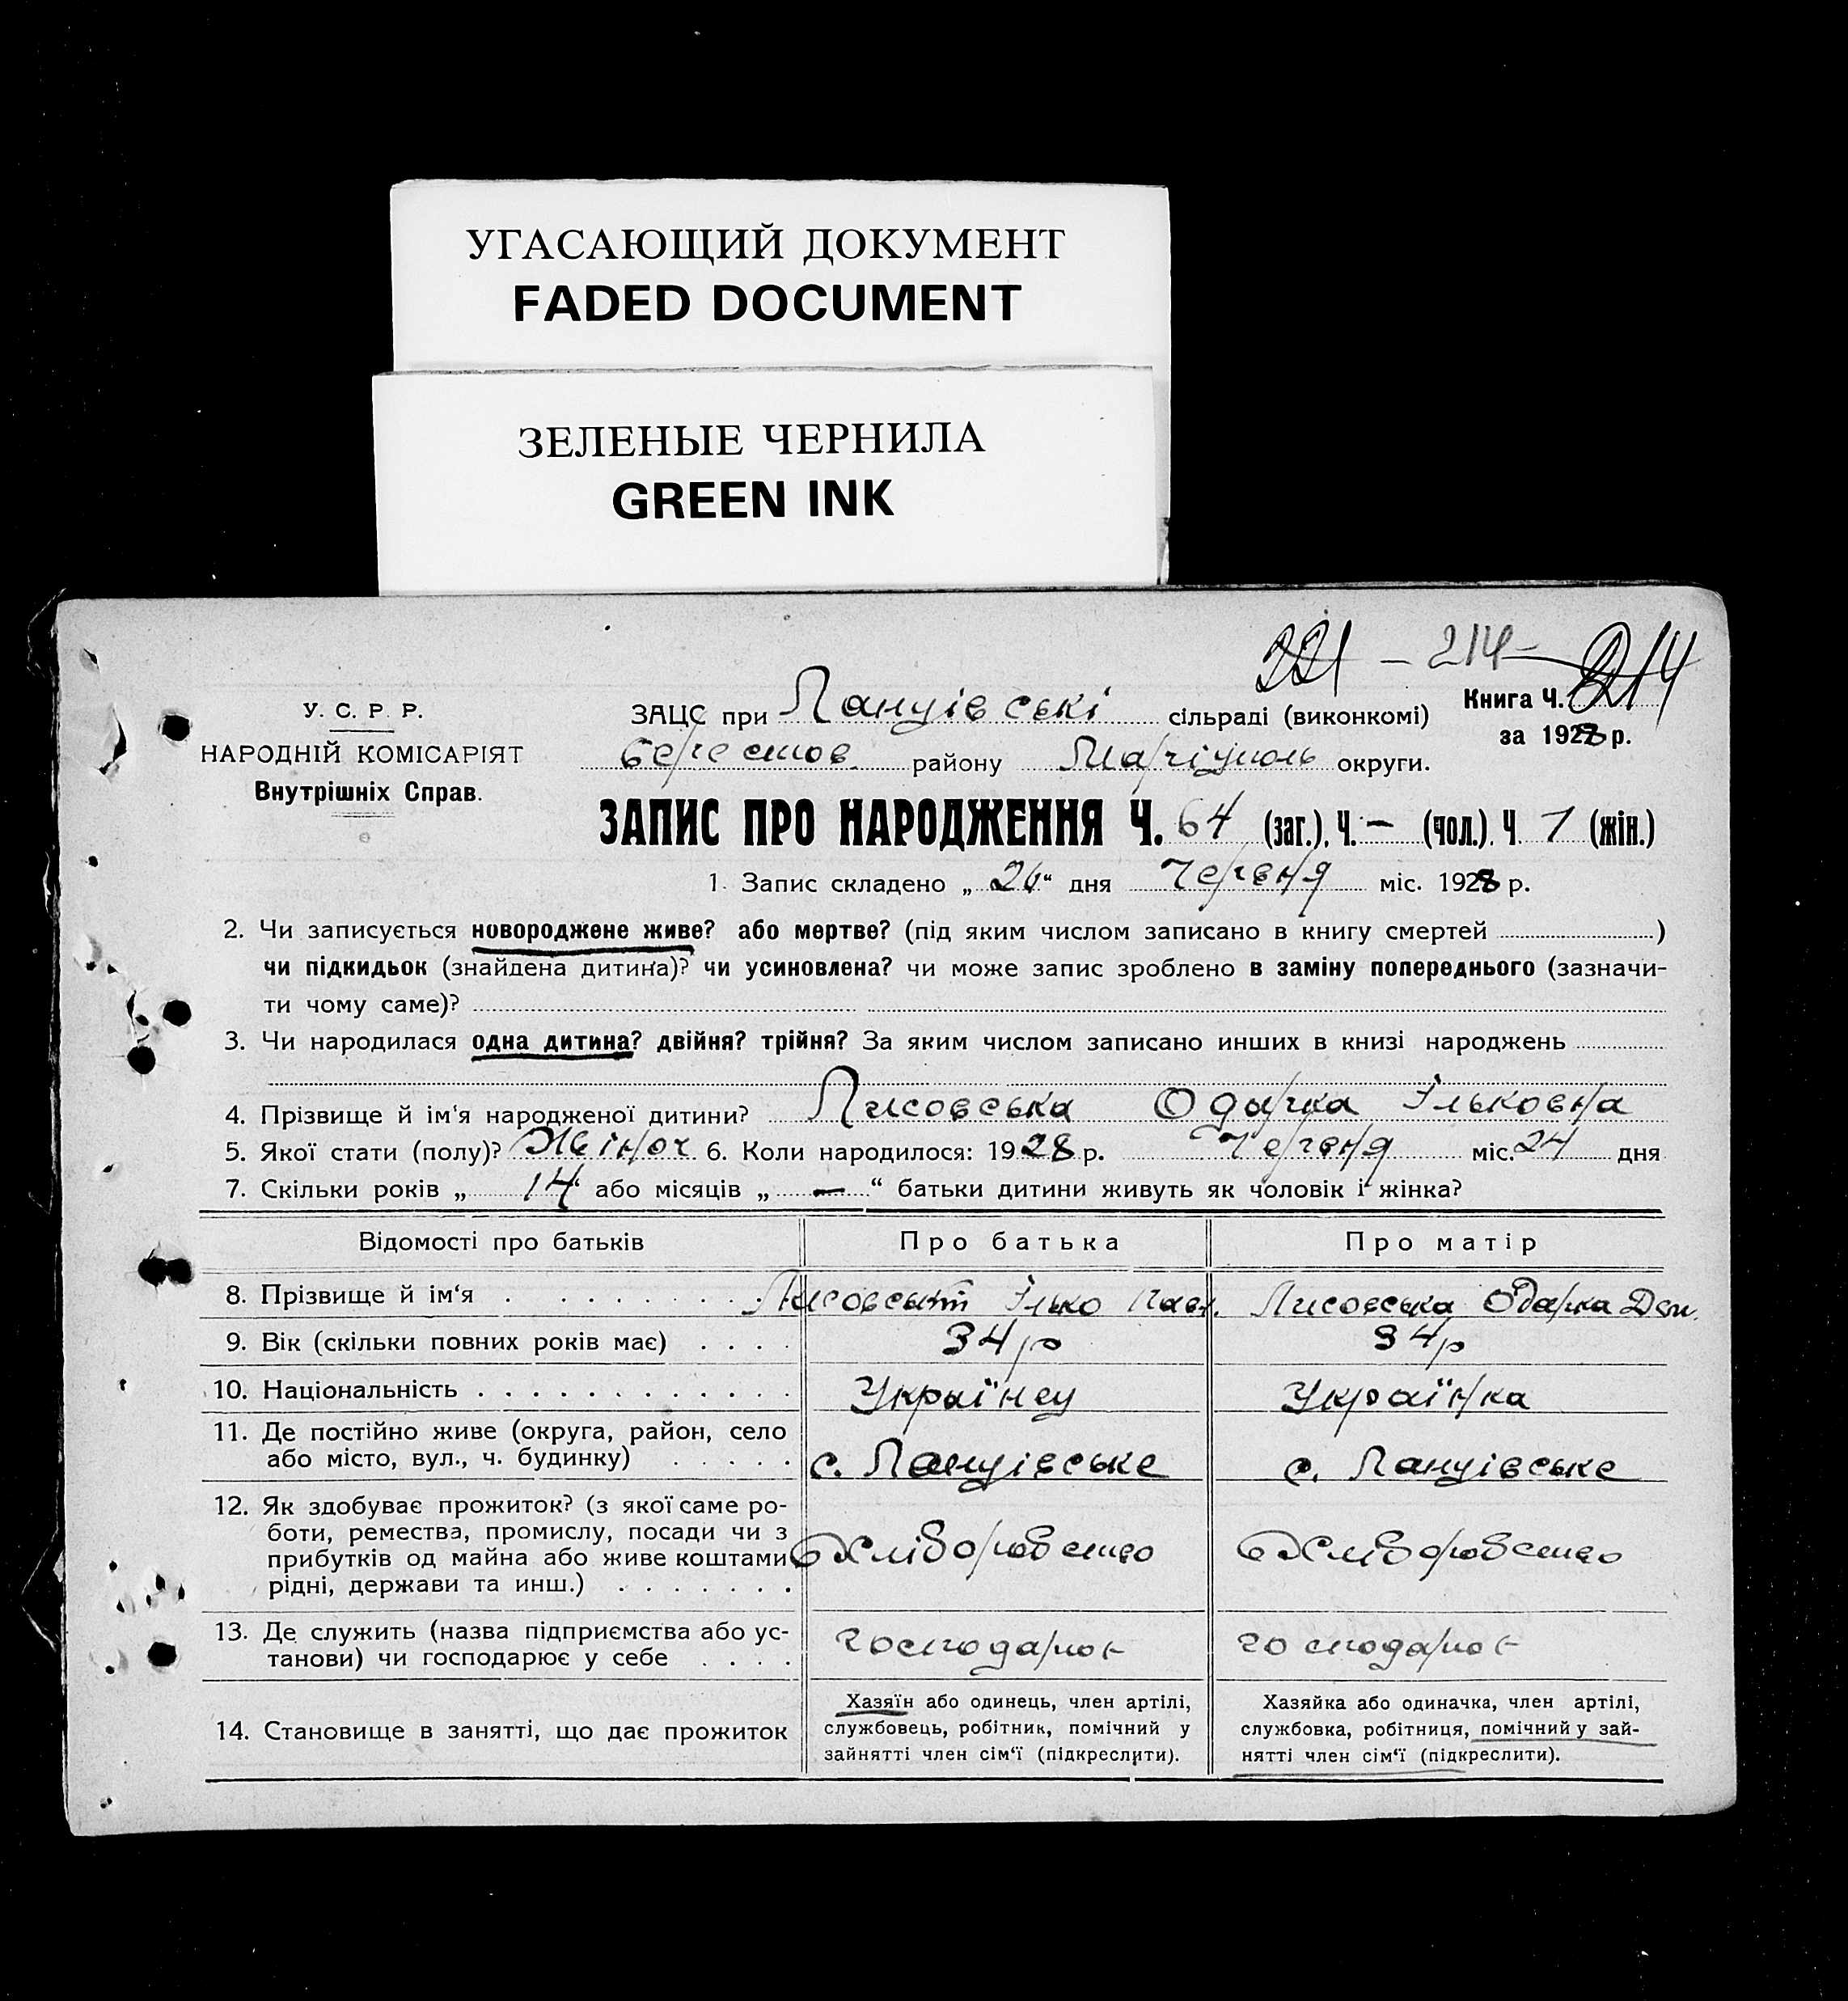 УГАСАЮЩИЙ ДОКУМЕНТ
FADED DOCUMENT
ЗЕЛЕНЫЕ ЧЕРНИЛА
GREEN INK
221 - 214 - 214
У. С. Р. Р.
НАРОДНІЙ КОМІСАРІЯТ
Внутрішніх Справ.
ЗАЦС при Ланцівські сільраді (виконкомі)
Книга Ч.
за 1928 р.
Берестов. району Маріуполь округи.
ЗАПИС ПРО НАРОДЖЕННЯ Ч. 64 (заг.), Ч. — (чол.). Ч 1 (жін.)
1. Запис складено „ 26 “ дня Червня міс. 1928 р.
2. Чи записується новороджене живе? або мертве? (під яким числом записано в книгу смертей )
чи підкидьок (знайдена дитина)? чи усиновлена? чи може запис зроблено в заміну попереднього (зазначи-
ти чому саме)?
3. Чи народилася одна дитина? двійня? трійня? За яким числом записано инших в книзі народжень
4. Прізвище й ім‘я народженої дитини? Лисовська Одарка Ільковна
5. Якої стати (полу)? Жіноч 6. Коли народилося: 1928 р. Червня міс. 24 дня
7. Скільки років „ 14 “ або місяців „ — “ батьки дитини живуть як чоловік і жінка?
Відомості про батьків Про батька Про матір
8. Прізвище й ім‘я Лисовський Ілько Павл. Лисовська Одарка Дем.
9. Вік (скільки повних років має) 34 р 34 р
10. Національність Українец Українка
11. Де постійно живе (округа, район, село
або місто, вул., ч. будинку) с. Ланцівське с. Ланцівське
12. Як здобуває прожиток? (з якої саме ро-
боти, ремества, промислу, посади чи з
прибутків од майна або живе коштами
рідні, держави та инш.) Хліборобство Хліборобство
13. Де служить (назва підприємства або ус-
танови) чи господарює у себе господарює господарює
14. Становище в занятті, що дає прожиток
Хазяїн або одинець, член артілі,
службовець, робітник, помічний у
зайнятті член сім‘ї (підкреслити).
Хазяйка або одиначка, член артілі,
службовка, робітниця, помічний у зай-
нятті член сім‘ї (підкреслити).